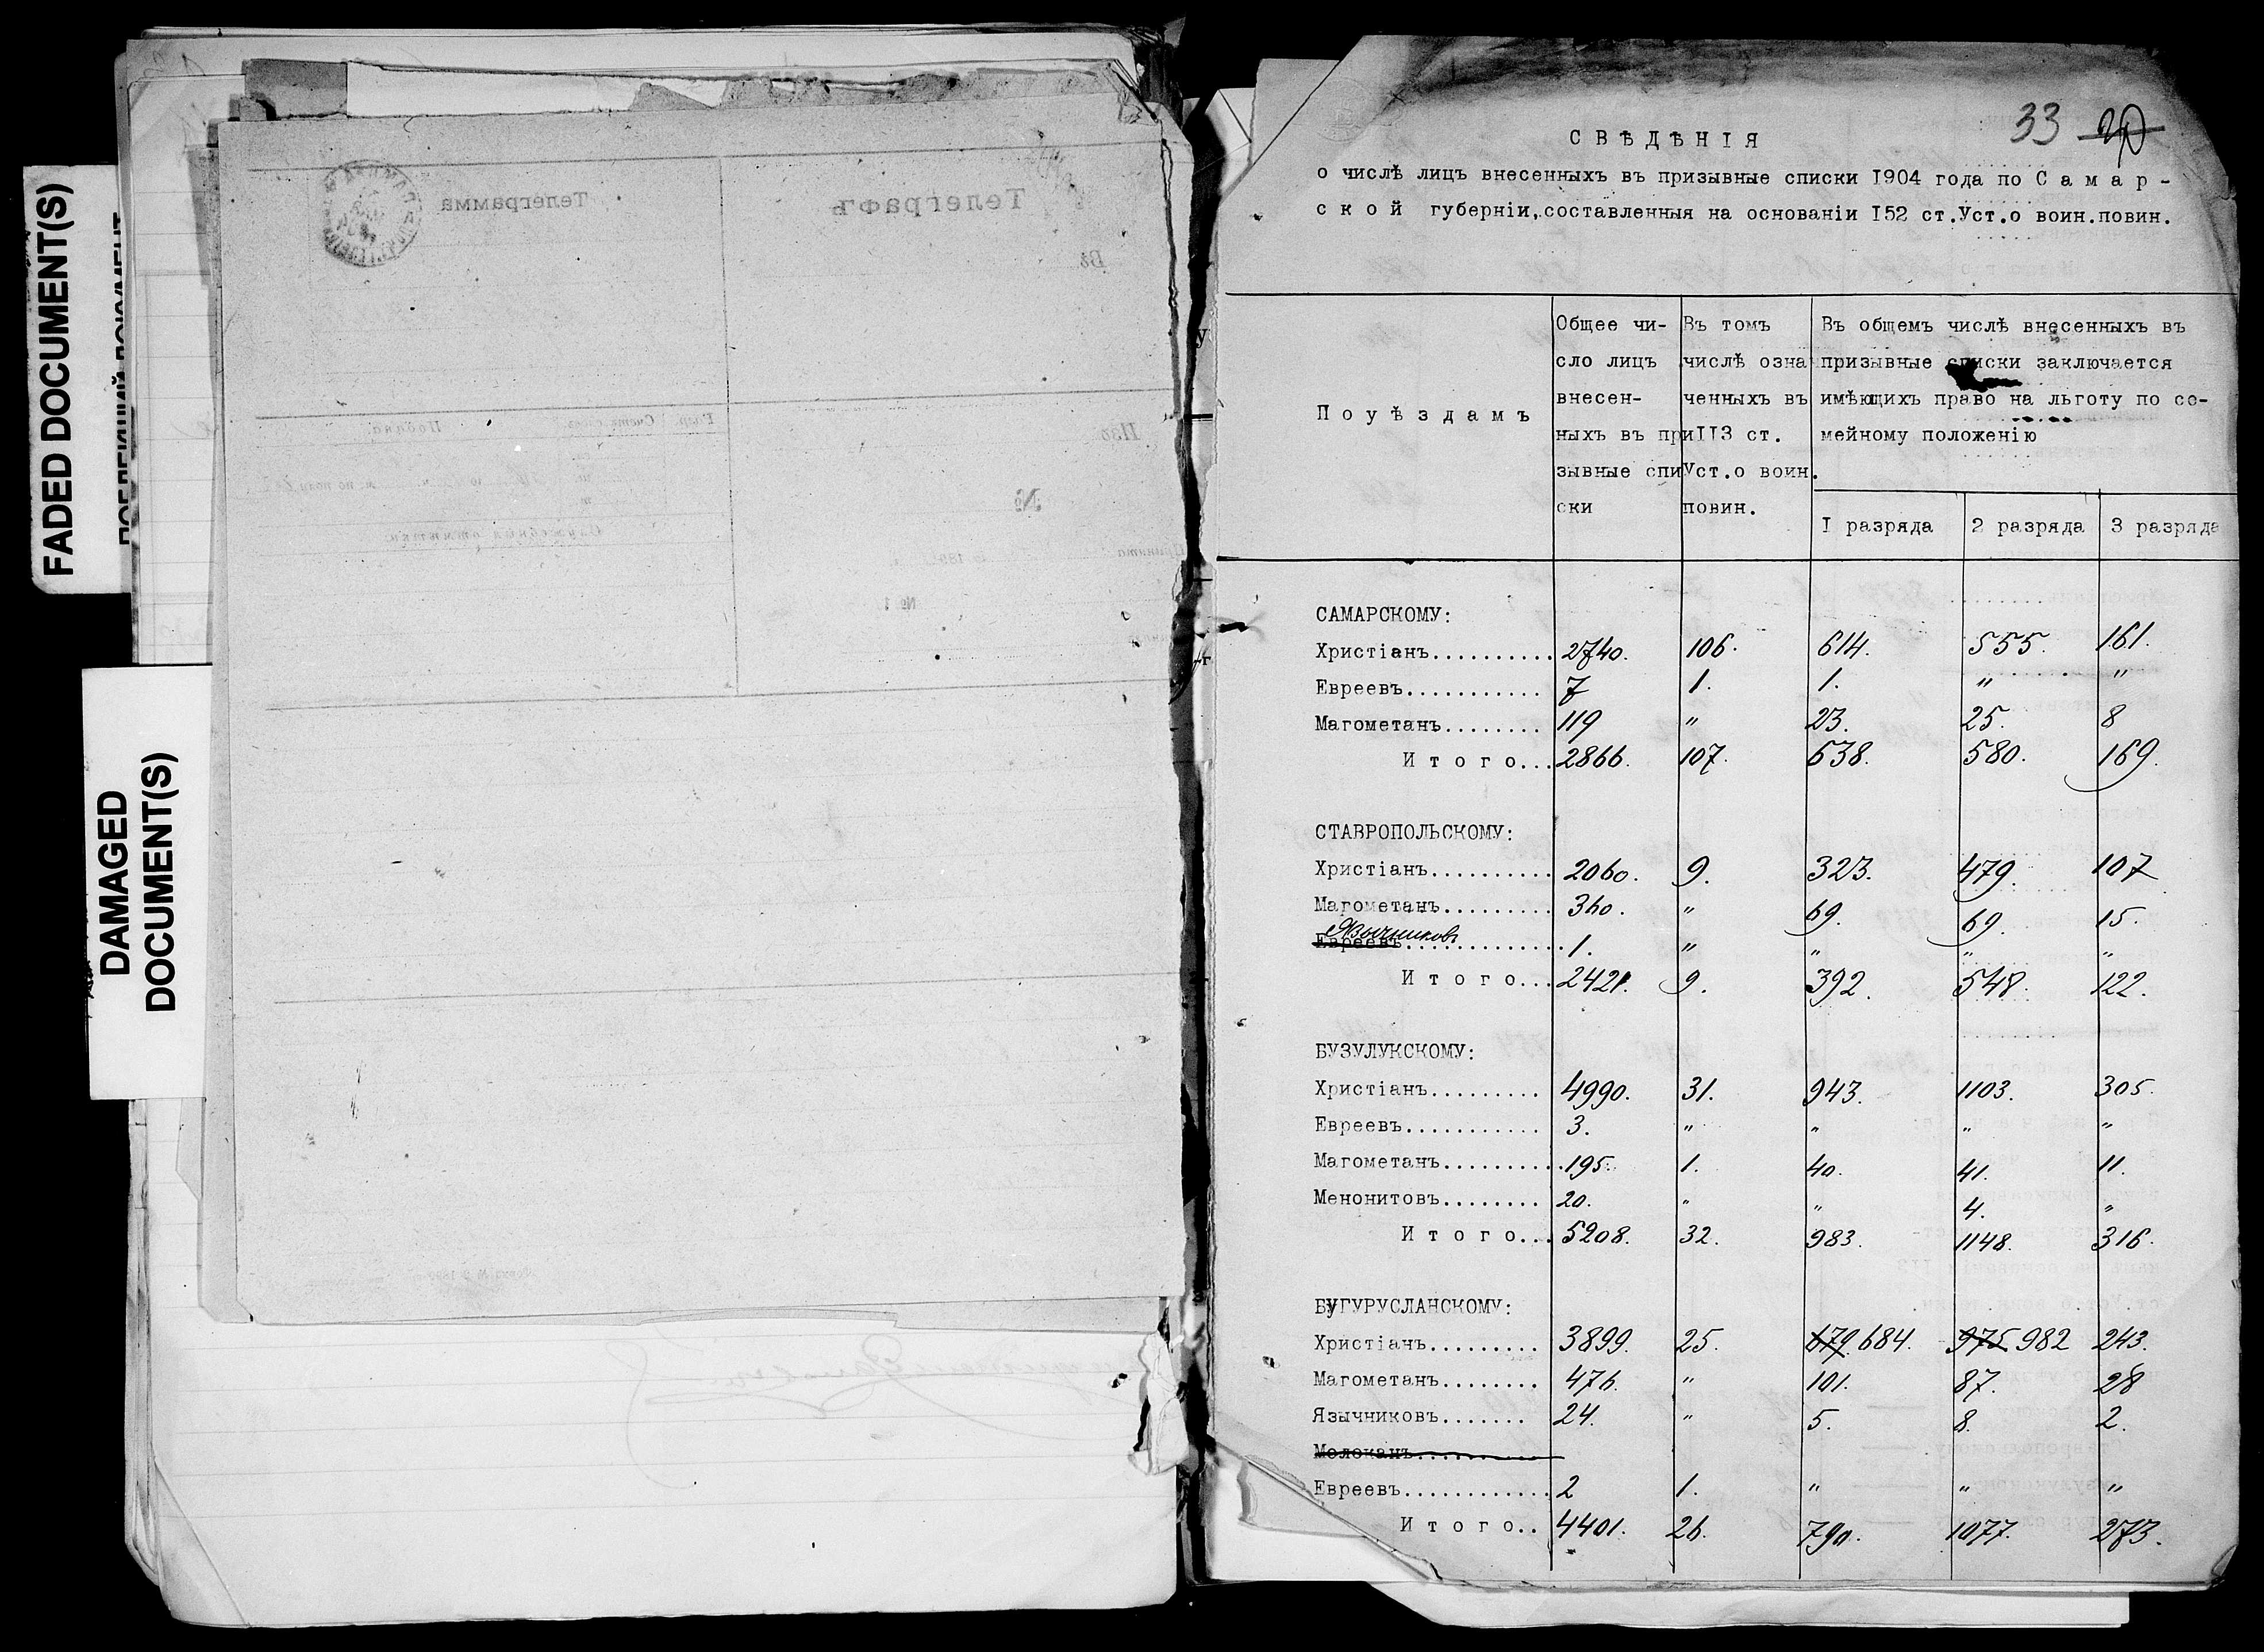 FADED DOCUMENT(S)
DAMAGED
DOCUMENT(S)
Телеграмма
Телеграфъ
Въ
Изъ
№
№ 1
33 20
СВѢДѢНІЯ
о числѣ лицъ внесенныхъ въ призывные списки 1904 года по Самар-
ской губерніи,составленныя на основаніи 152 ст.Уст.о воин.повин.
По уѣздамъ
Общее чи-
сло лицъ
внесен-
ныхъ въ при
зывные спи
ски
Въ томъ
числѣ озна
ченныхъ въ
113 ст.
Уст.о воин.
повин.
Въ общемъ числѣ внесенныхъ въ
призывные списки заключается
имѣющихъ право на льготу по се-
мейному положенію
1 разряда 2 разряда 3 разряда
САМАРСКОМУ:
Христіанъ.......... 2740. 106. 614. 555. 161.
Евреевъ........... 7 1. 1. " "
Магометанъ........ 119 " 23. 25. 8
Итого... 2866. 107. 638. 580. 169.
СТАВРОПОЛЬСКОМУ:
Христіанъ.......... 2060. 9. 323. 479. 107
Магометанъ......... 360. " 69. 69. 15.
Язычниковъ
Евреевъ............. 1. " " " "
Итого... 2421. 9. 392. 548. 122.
БУЗУЛУКСКОМУ:
Христіанъ......... 4990. 31. 943. 1103. 305.
Евреевъ........... 3. " " " "
Магометанъ.......... 195. 1. 40. 41. 11.
Менонитовъ........ 20. " " 4. "
Итого... 5208. 32. 983. 1148. 316.
БУГУРУСЛАНСКОМУ:
Христіанъ......... 3899. 25. 679. 684. 975 982 243.
Магометанъ........ 476. " 101. 87. 28
Язычниковъ....... 24. " 5. 8. 2.
Молоканъ...........
Евреевъ............ 2 1. " " "
Итого.. 4401. 26. 790. 1077. 273.